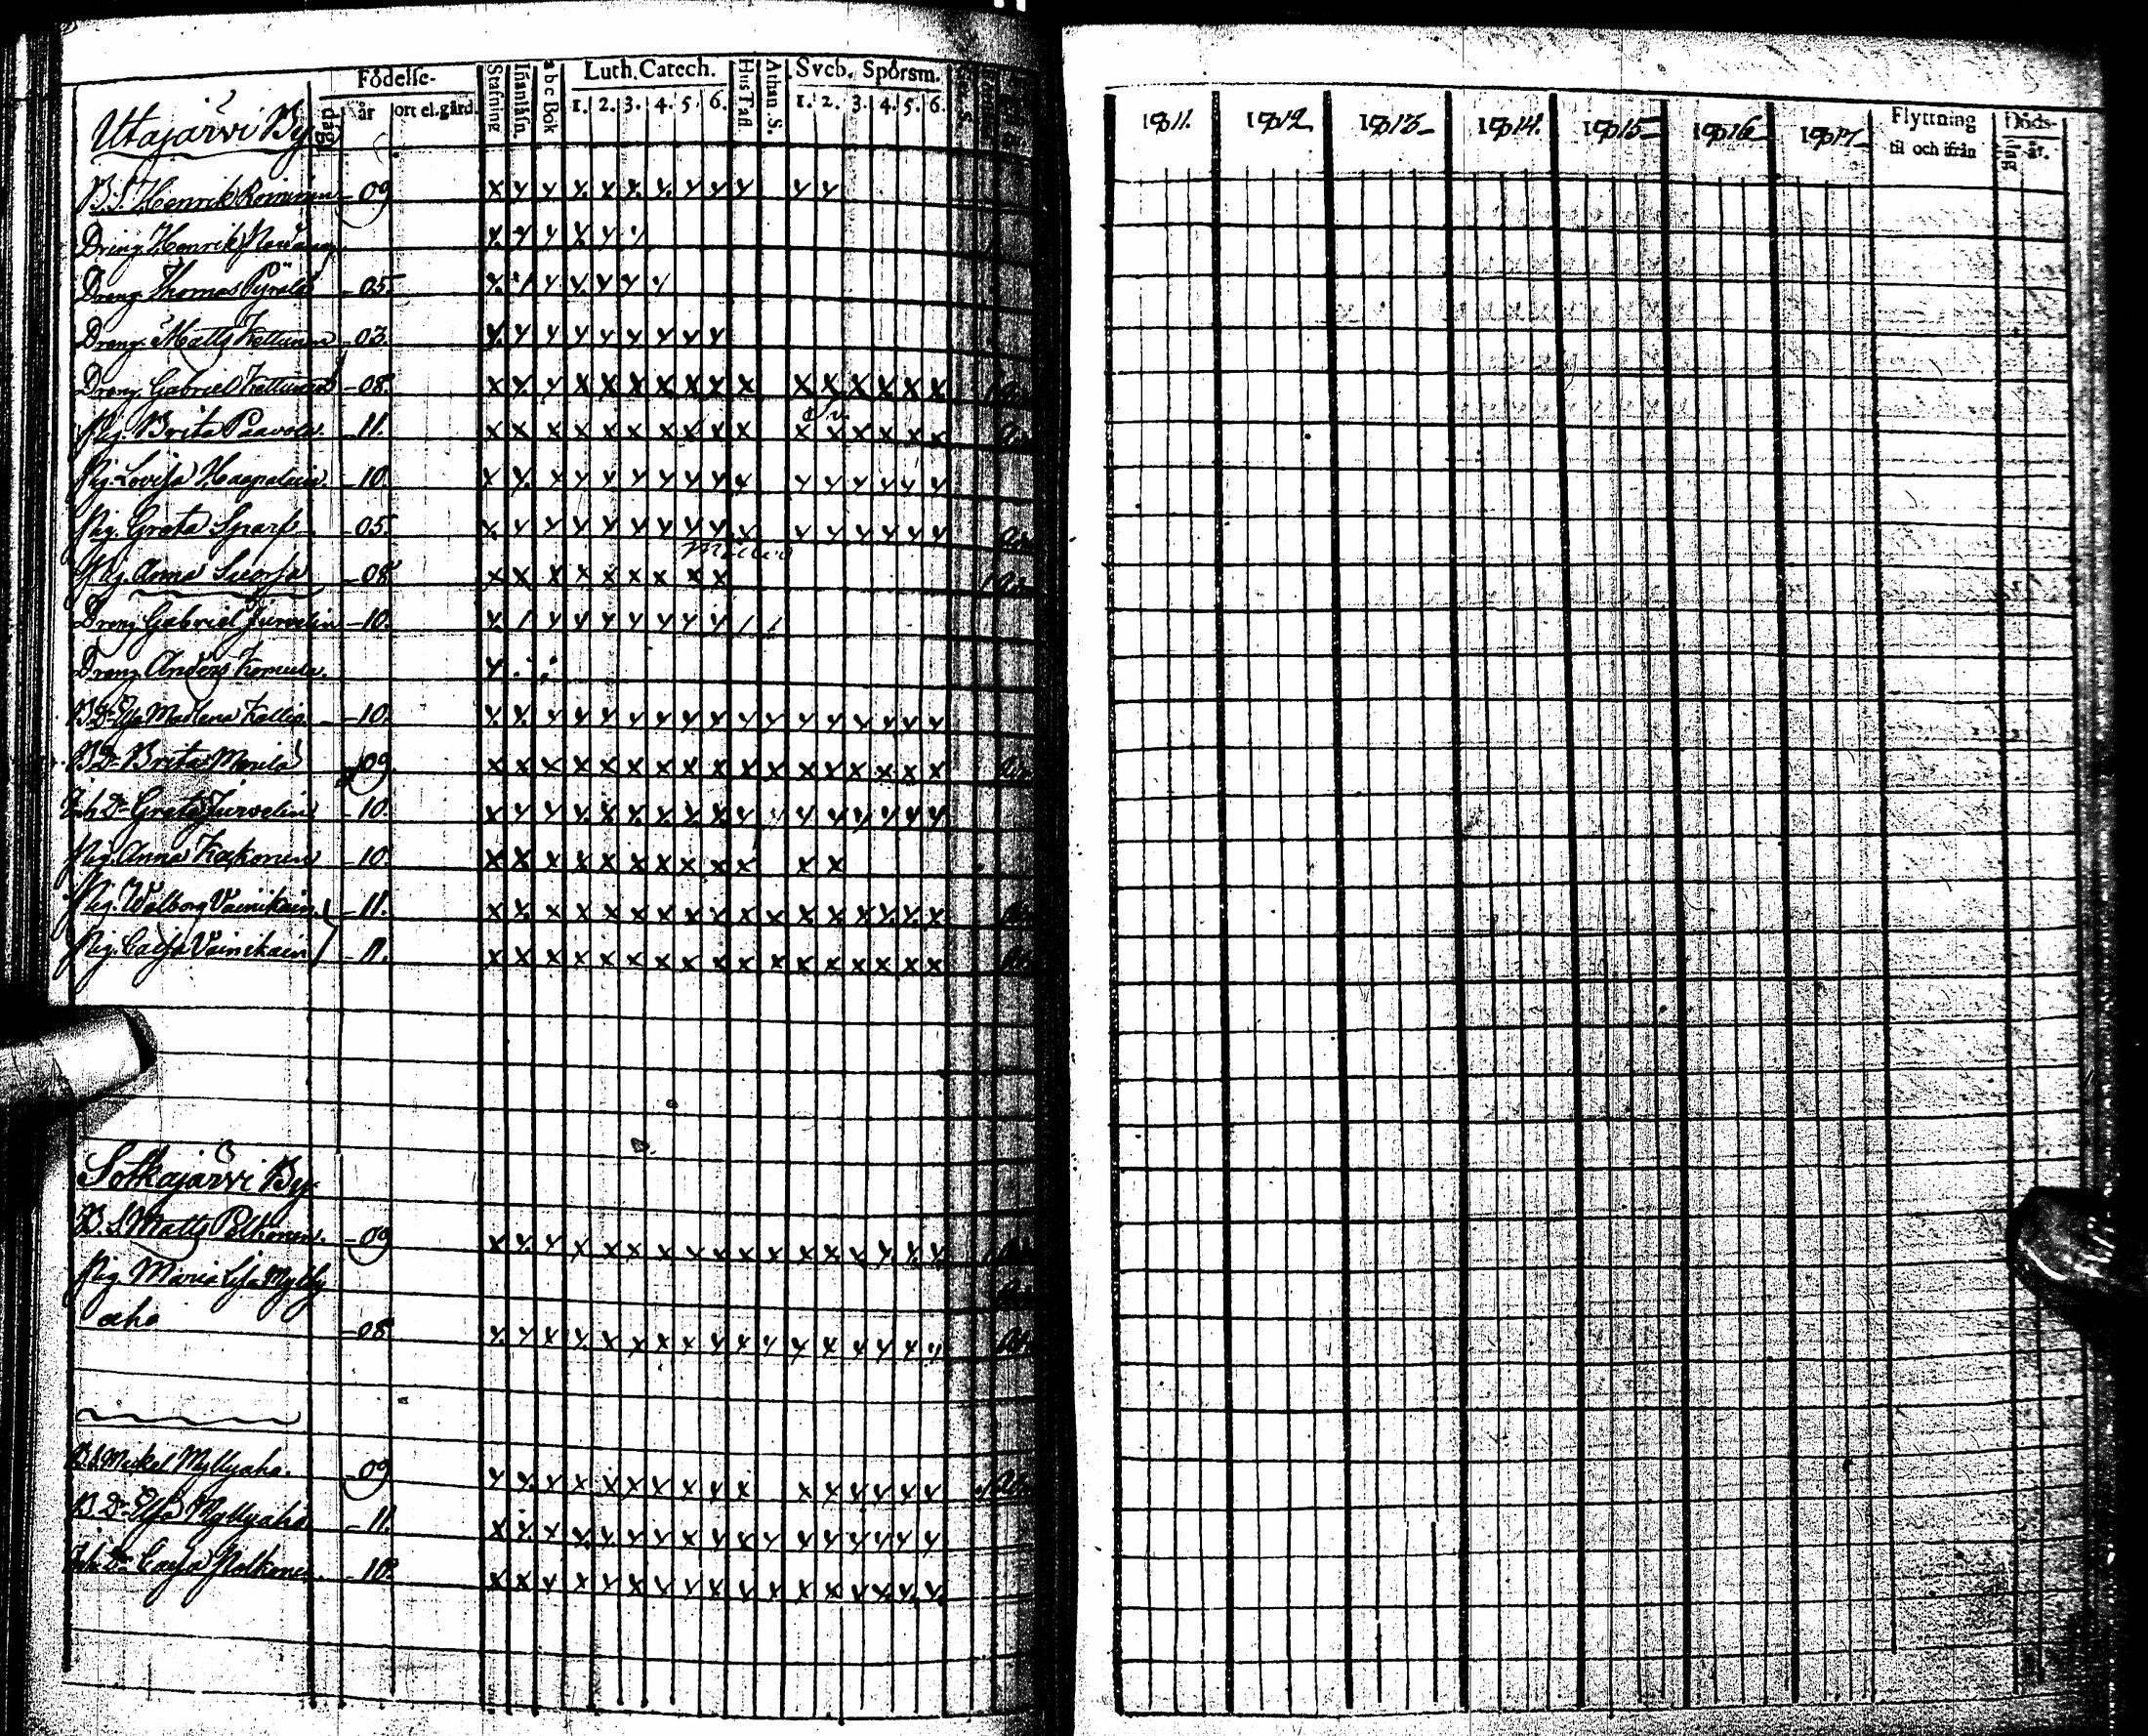 Födelse-
Stafning
Inanläsn.
a b c Bok
Luth. Catech.
Hus Tafl.
Athan. S.
Sveb. Spörsm.
dag
år
ort el. gård.
1. 2. 3. 4. 5. 6.
1. 2. 3. 4. 5. 6.
Utajärvi By
B. S. Henrik Roininen -09
Dräng Henrik
Dräng Thomas Pyrälä -05.
Dräng Matts Kettunen -03.
Dräng Gabriel Kettunen -08.
Pig. Brita Paavola. -11.
Pig. Lovisa Haapalain -10.
Pig. Greta Sparf -05.
Pig. Anna Suorsa -08.
Dräng Gabriel Jurvelin -10.
Dräng Anders
B. Dr. Elsa Madlena Kallio -10.
B. Dr. Brita Merilä -09
Inh. Dr. Greta Jurvelin -10.
Pig. Anna Kakonen -10.
Pig. Walborg Vainikain. -11.
Pig. Caisa Vainikain -11.
Sotkajärvi By
B. S. Matts Pelkonen. -09
Pig. Maria Lisa Mylly
aho -08.
B. S. Mickel Myllyaho. -09
B. Dr. Elsa Myllyaho -11.
Inh. Dr. Caisa Polkonen. -10.
1811. 1812 1813 1814. 1815 1816 1817
Flyttning
til och ifrån
Döds-
dag
år.